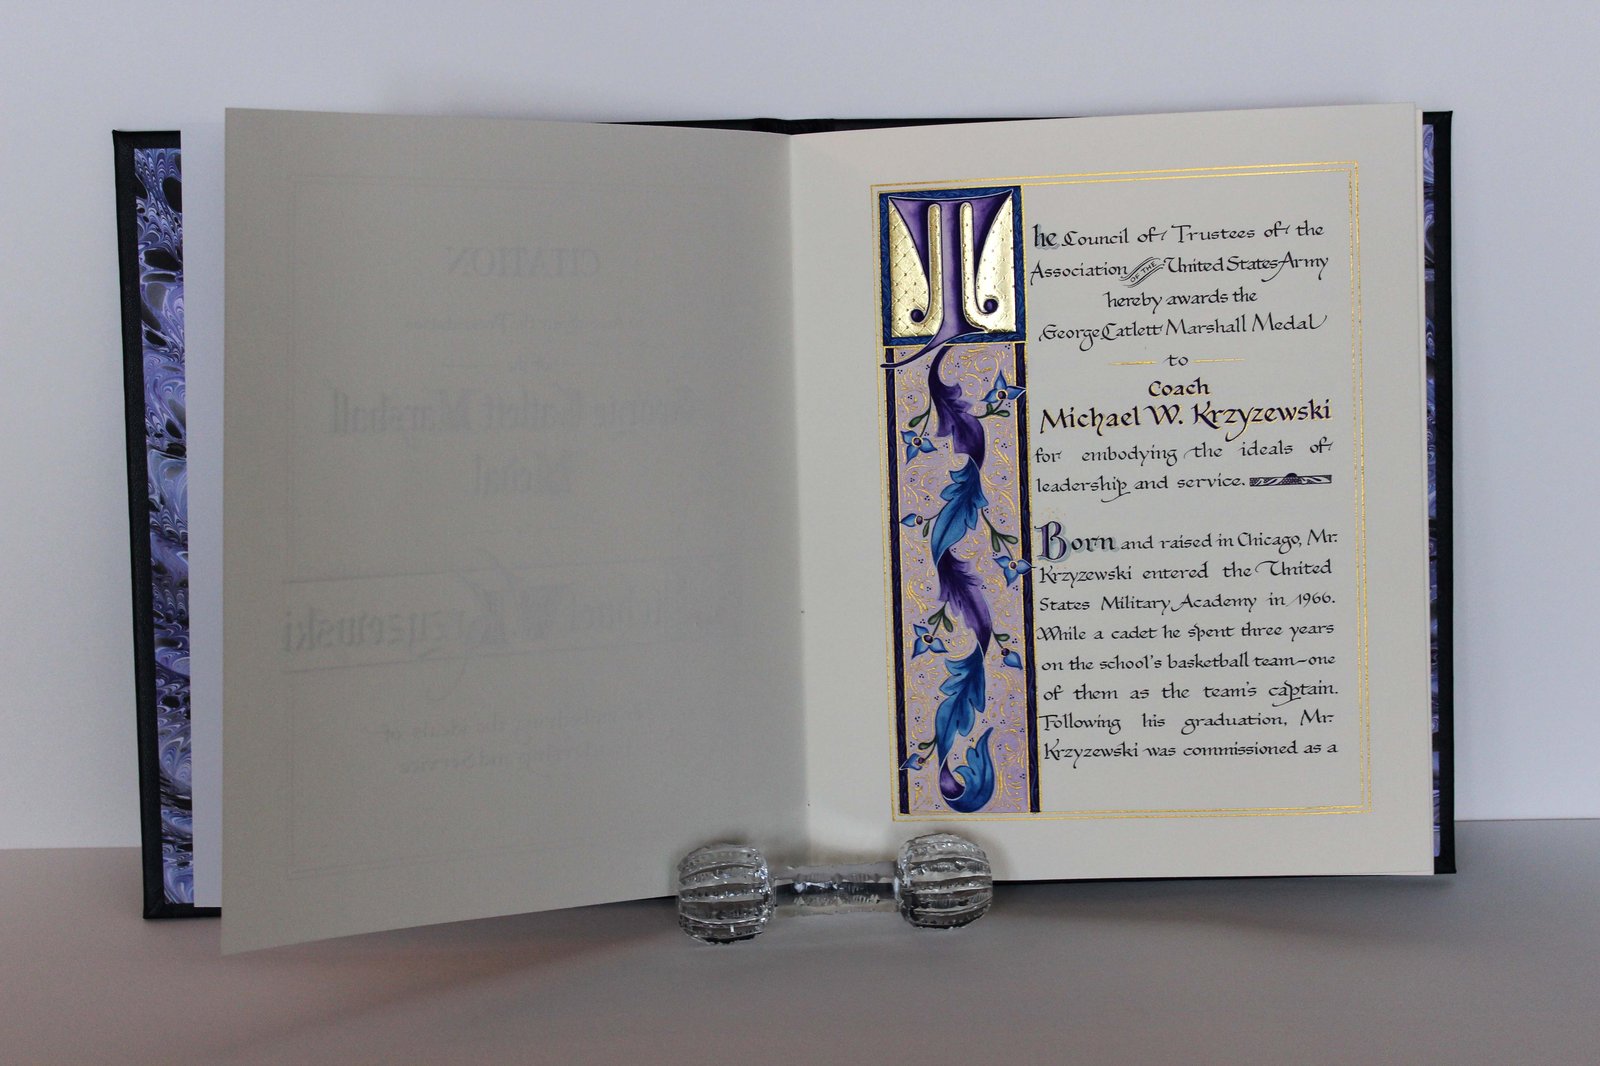 CITATION
Marshall
Krzyzewski
The Council of Trustees of the
Association OF THE United States Army
hereby awards the
George Catlett Marshall Medal
to
Coach
Michael W. Krzyzewski
for embodying the ideals of
leadership and service.
Born and raised in Chicago, Mr.
Krzyzewski entered the United
States Military Academy in 1966.
While a cadet he spent three years
on the school's basketball team—one
of them as the team's captain.
Following his graduation, Mr.
Krzyzewski was commissioned as a